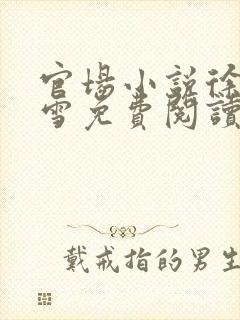 官場小說徐
雪免費閱讀
戴戒指的男生